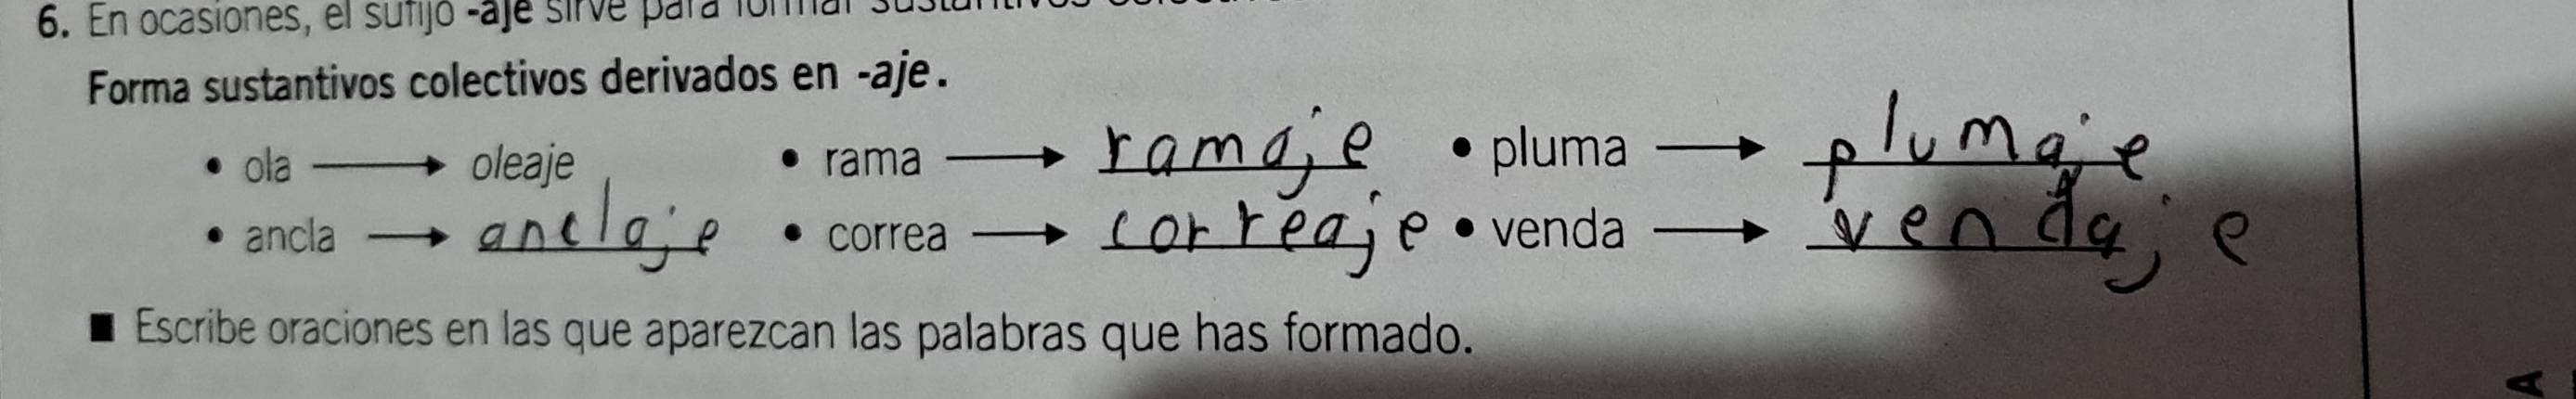 6. En ocasiones, el sufijo -aje sirve para formar sustantivos
Forma sustantivos colectivos derivados en -aje.
• ola → oleaje • rama → ramaje • pluma → plumaje
• ancla → anclaje • correa → correaje • venda → vendaje
■ Escribe oraciones en las que aparezcan las palabras que has formado.
A